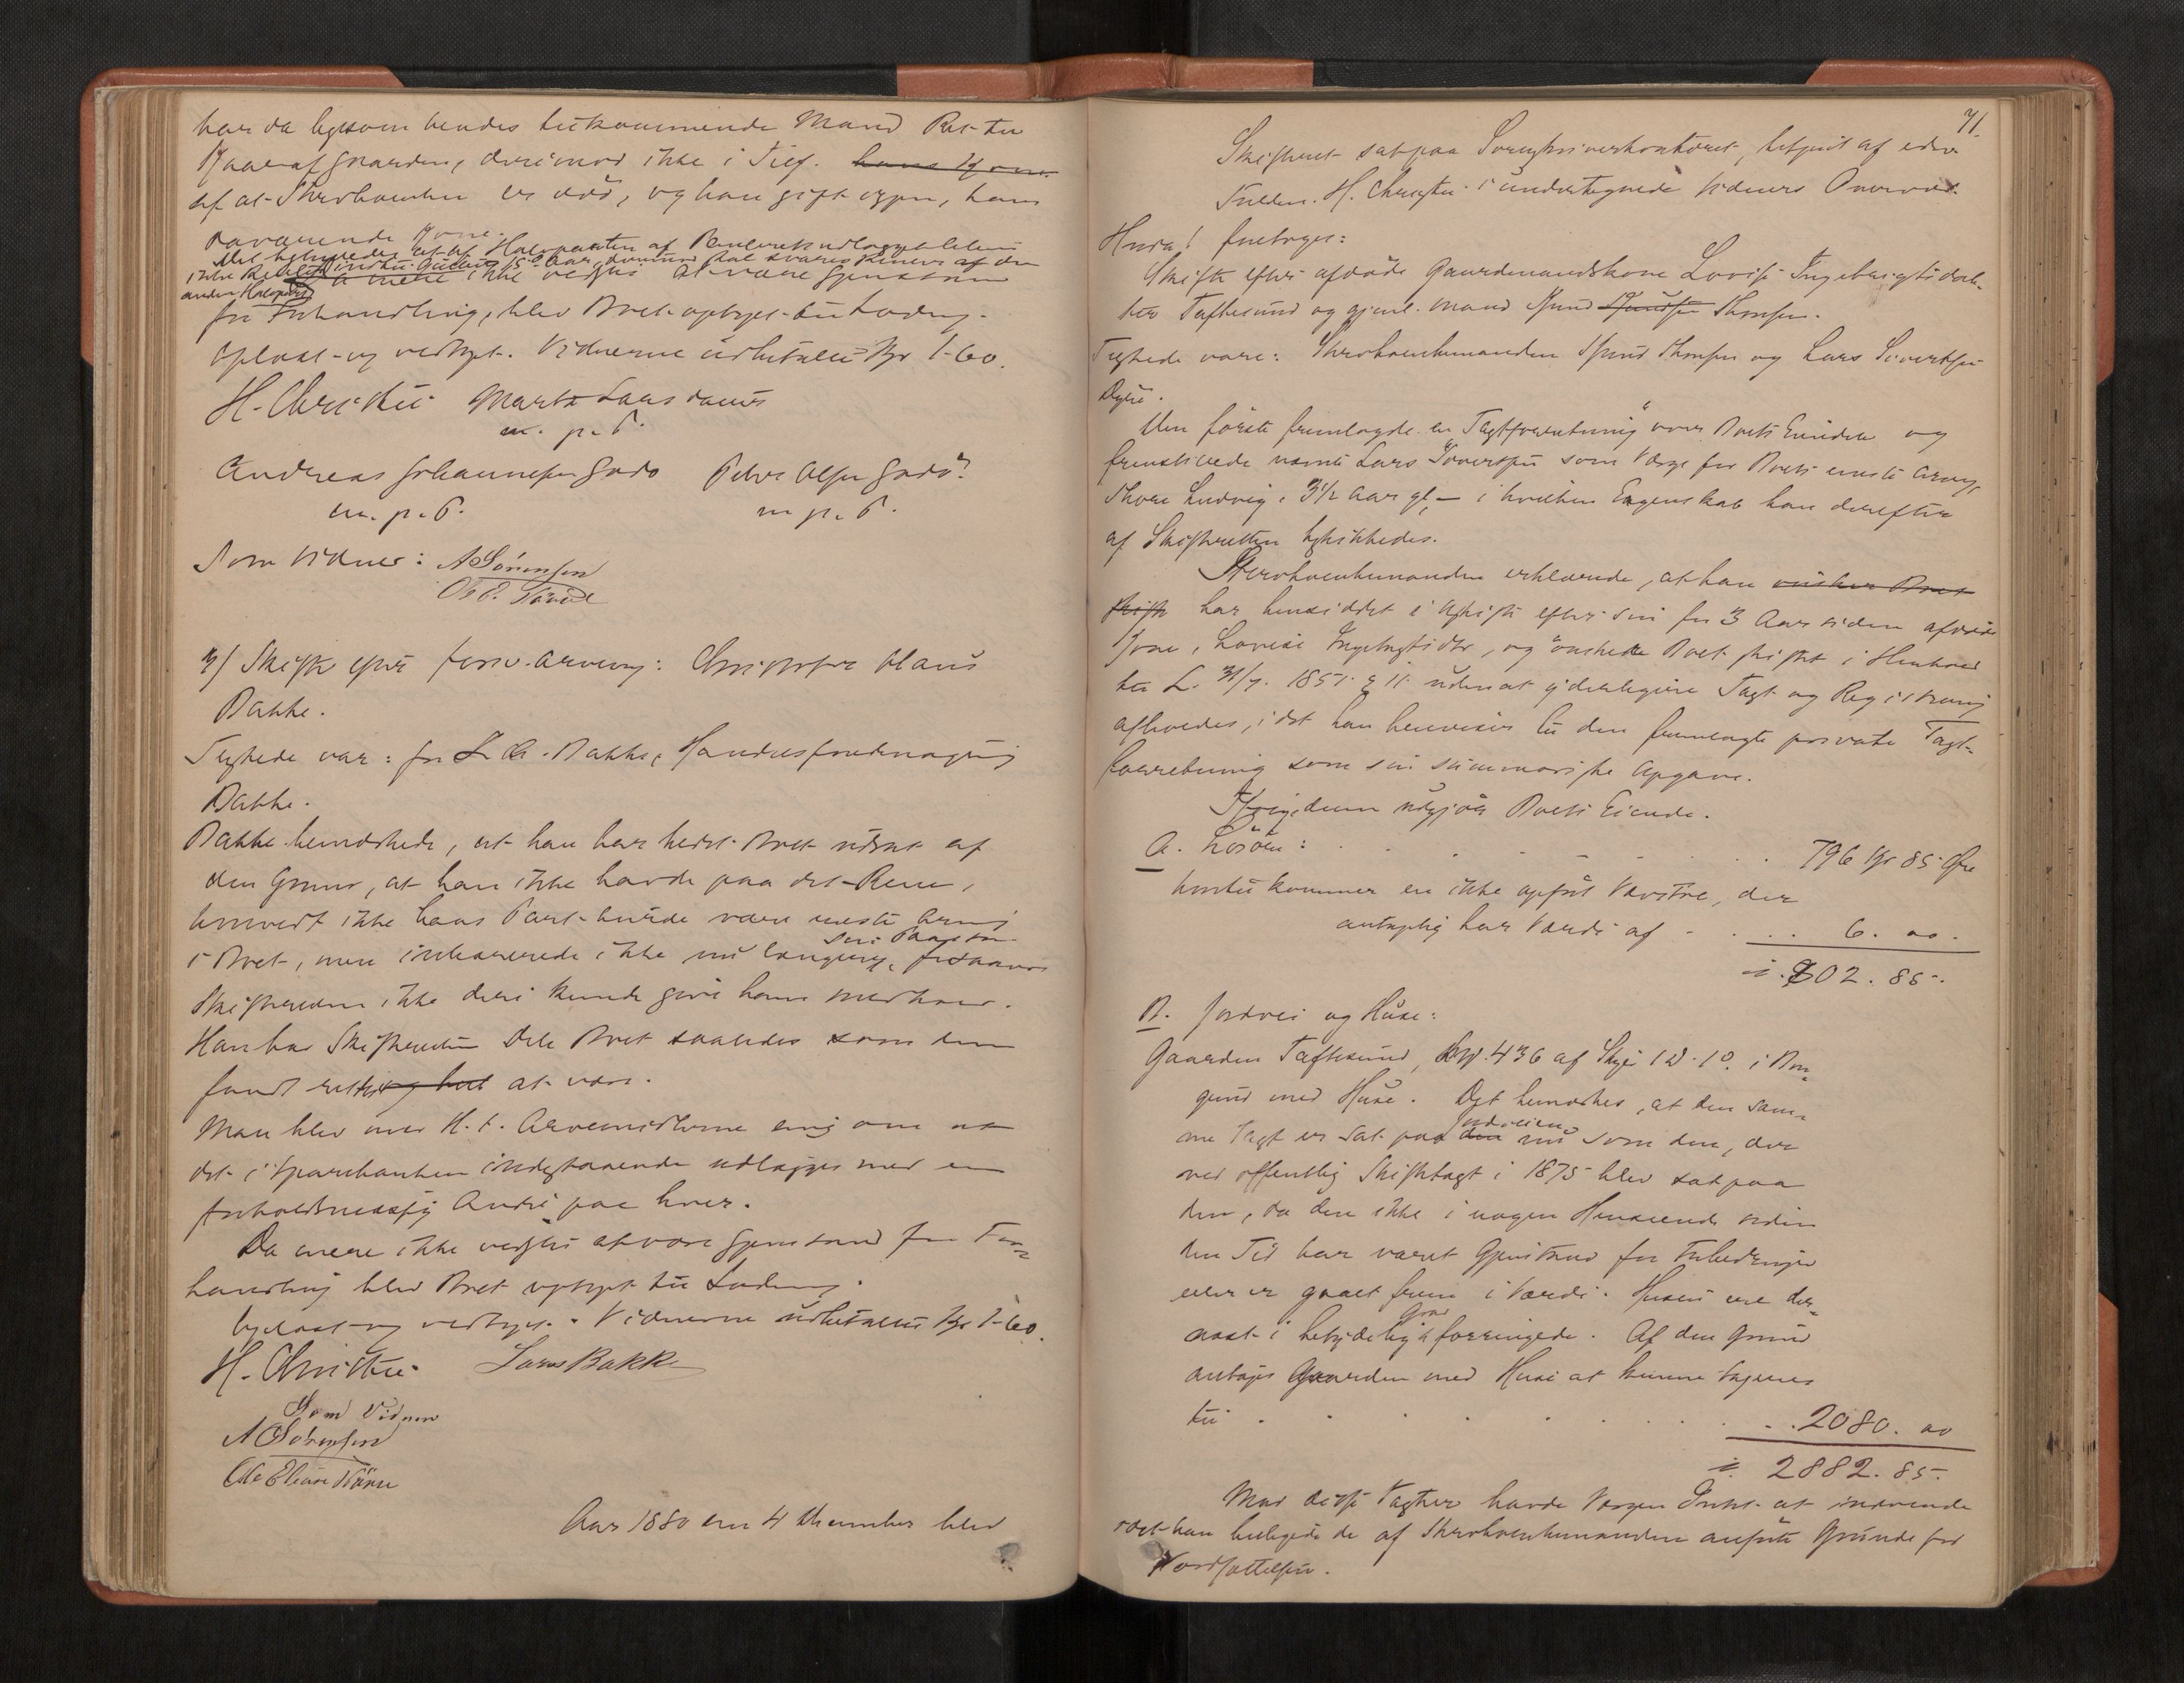 har da ligesom hendes tilkommende Mand Ret til
Kaar af Gaarden, derimod ikke i Tilf. hans Kone
af at Sterboenken er død, og han gift igjen, hans
daværende Kone.
for Forhandling, blev Boet optaget til Lodning.
Oplæst og vedtaget. Vidnerne udbetaltes Kr 1-60.
H. Christie Marta Larsdatter
m. p. P.
Andreas Johannesen Godø Peder Olsen Godø
m. p. P. m. p. P.
Som Vidner: A Sørensen
3/ Skifte efter forsv. Arving: Christopher Claus
Bakke.
Tilstede var: for L. A. Bakke, Handelsfuldmægtig
Bakke.
Bakke bemærkede, at han har holdt Boet udsat af
den Grund, at han ikke havde paa det Rene,
hvorvidt ikke hans Part burde være eneste Arving
i Boet, men inhærerede ikke nu længere sin Paastand
Skifteretten ikke deri kunde give ham Medhold.
Han bad Skifteretten dele Boet saaledes som den
fandt rettest og bedst at være.
Man blev med H. t. Arvemidlerne enig om at
det i Sparebanken indestaaende udlægges med en
forholdsmæssig Andel paa hver.
Da mere ikke vidstes at være Gjenstand for For-
handling blev Boet optaget til Lodning.
Oplæst og vedtaget. Vidnerne udbetaltes Kr 1-60.
H. Christie Lars Bakke
Som Vidner
A Sørensen
Aar 1880 den 4 December blev
71.
Skifteret sat paa Sorenskriverkontoret, betjent af edsv.
Fuldm. H. Christie i undertegnede Vidners Overvær.
Hvor foretoges:
Skifte efter afdøde Gaardmandskone Lovise Ingebrigtsdat-
ter Taftesund og gjenl. Mand Knud Knudsen Thorsen.
Tilstede vare: Sterboenkemanden Knud Thorsen og Lars Sivertsen
Den første fremlagde en Taxtforretning over Boets Eiendele og
fremstillede nævnte Lars Sivertsen som Værge for Boets eneste Arving,
Ludvig, 3½ Aar gl, i hvilken Egenskab han derefter
af Skifteretten beskikkedes.
Sterboenkemanden erklærede, at han ønsker Boet
skifte har hensiddet i uskifte efter sin for 3 Aar siden afdøde
Kone, Lovise Ingebrigtsdtr, og ønskede Boet skiftet i Henhold
til L. 31/7. 1851. § 11. uden at yderligere Taxt og Registrering
afholdes, idet han henviser til den fremlagte private Taxt-
forretning som sin summariske Opgave.
Ifølge denne udgjør Boets Eiendele.
A. Løsøre: 796 Kr 85 Øre
hvortil kommer en ikke opført Vævstol, der
antagelig har Værdi af 6. 00.
802. 85.
B. Jordvei og Huse:
Gaarden Taftesund, Lbn. 436 af Skyld 1 D. 1 O. i Bor-
gund med Huse. Det bemærkes, at den sam-
me Taxt er sat paa den Jordveien nu som den, der
ved offentlig Skiftetaxt i 1875 blev sat paa
den, da den ikke i nogen Henseende siden
den Tid har været Gjenstand for Forbedringer
eller er gaaet frem i Værdi. Husene ere der-
næst i betydelig Grad forringede. Af den Grund
antages Gaarden med Huse at kunne taxeres
til 2080. 00
2882. 85.
Mod disse Taxter havde Værgen Intet at indvende
idet han bilagde de af Sterboenkemanden anførte Grunde for
Værdsættelsen.